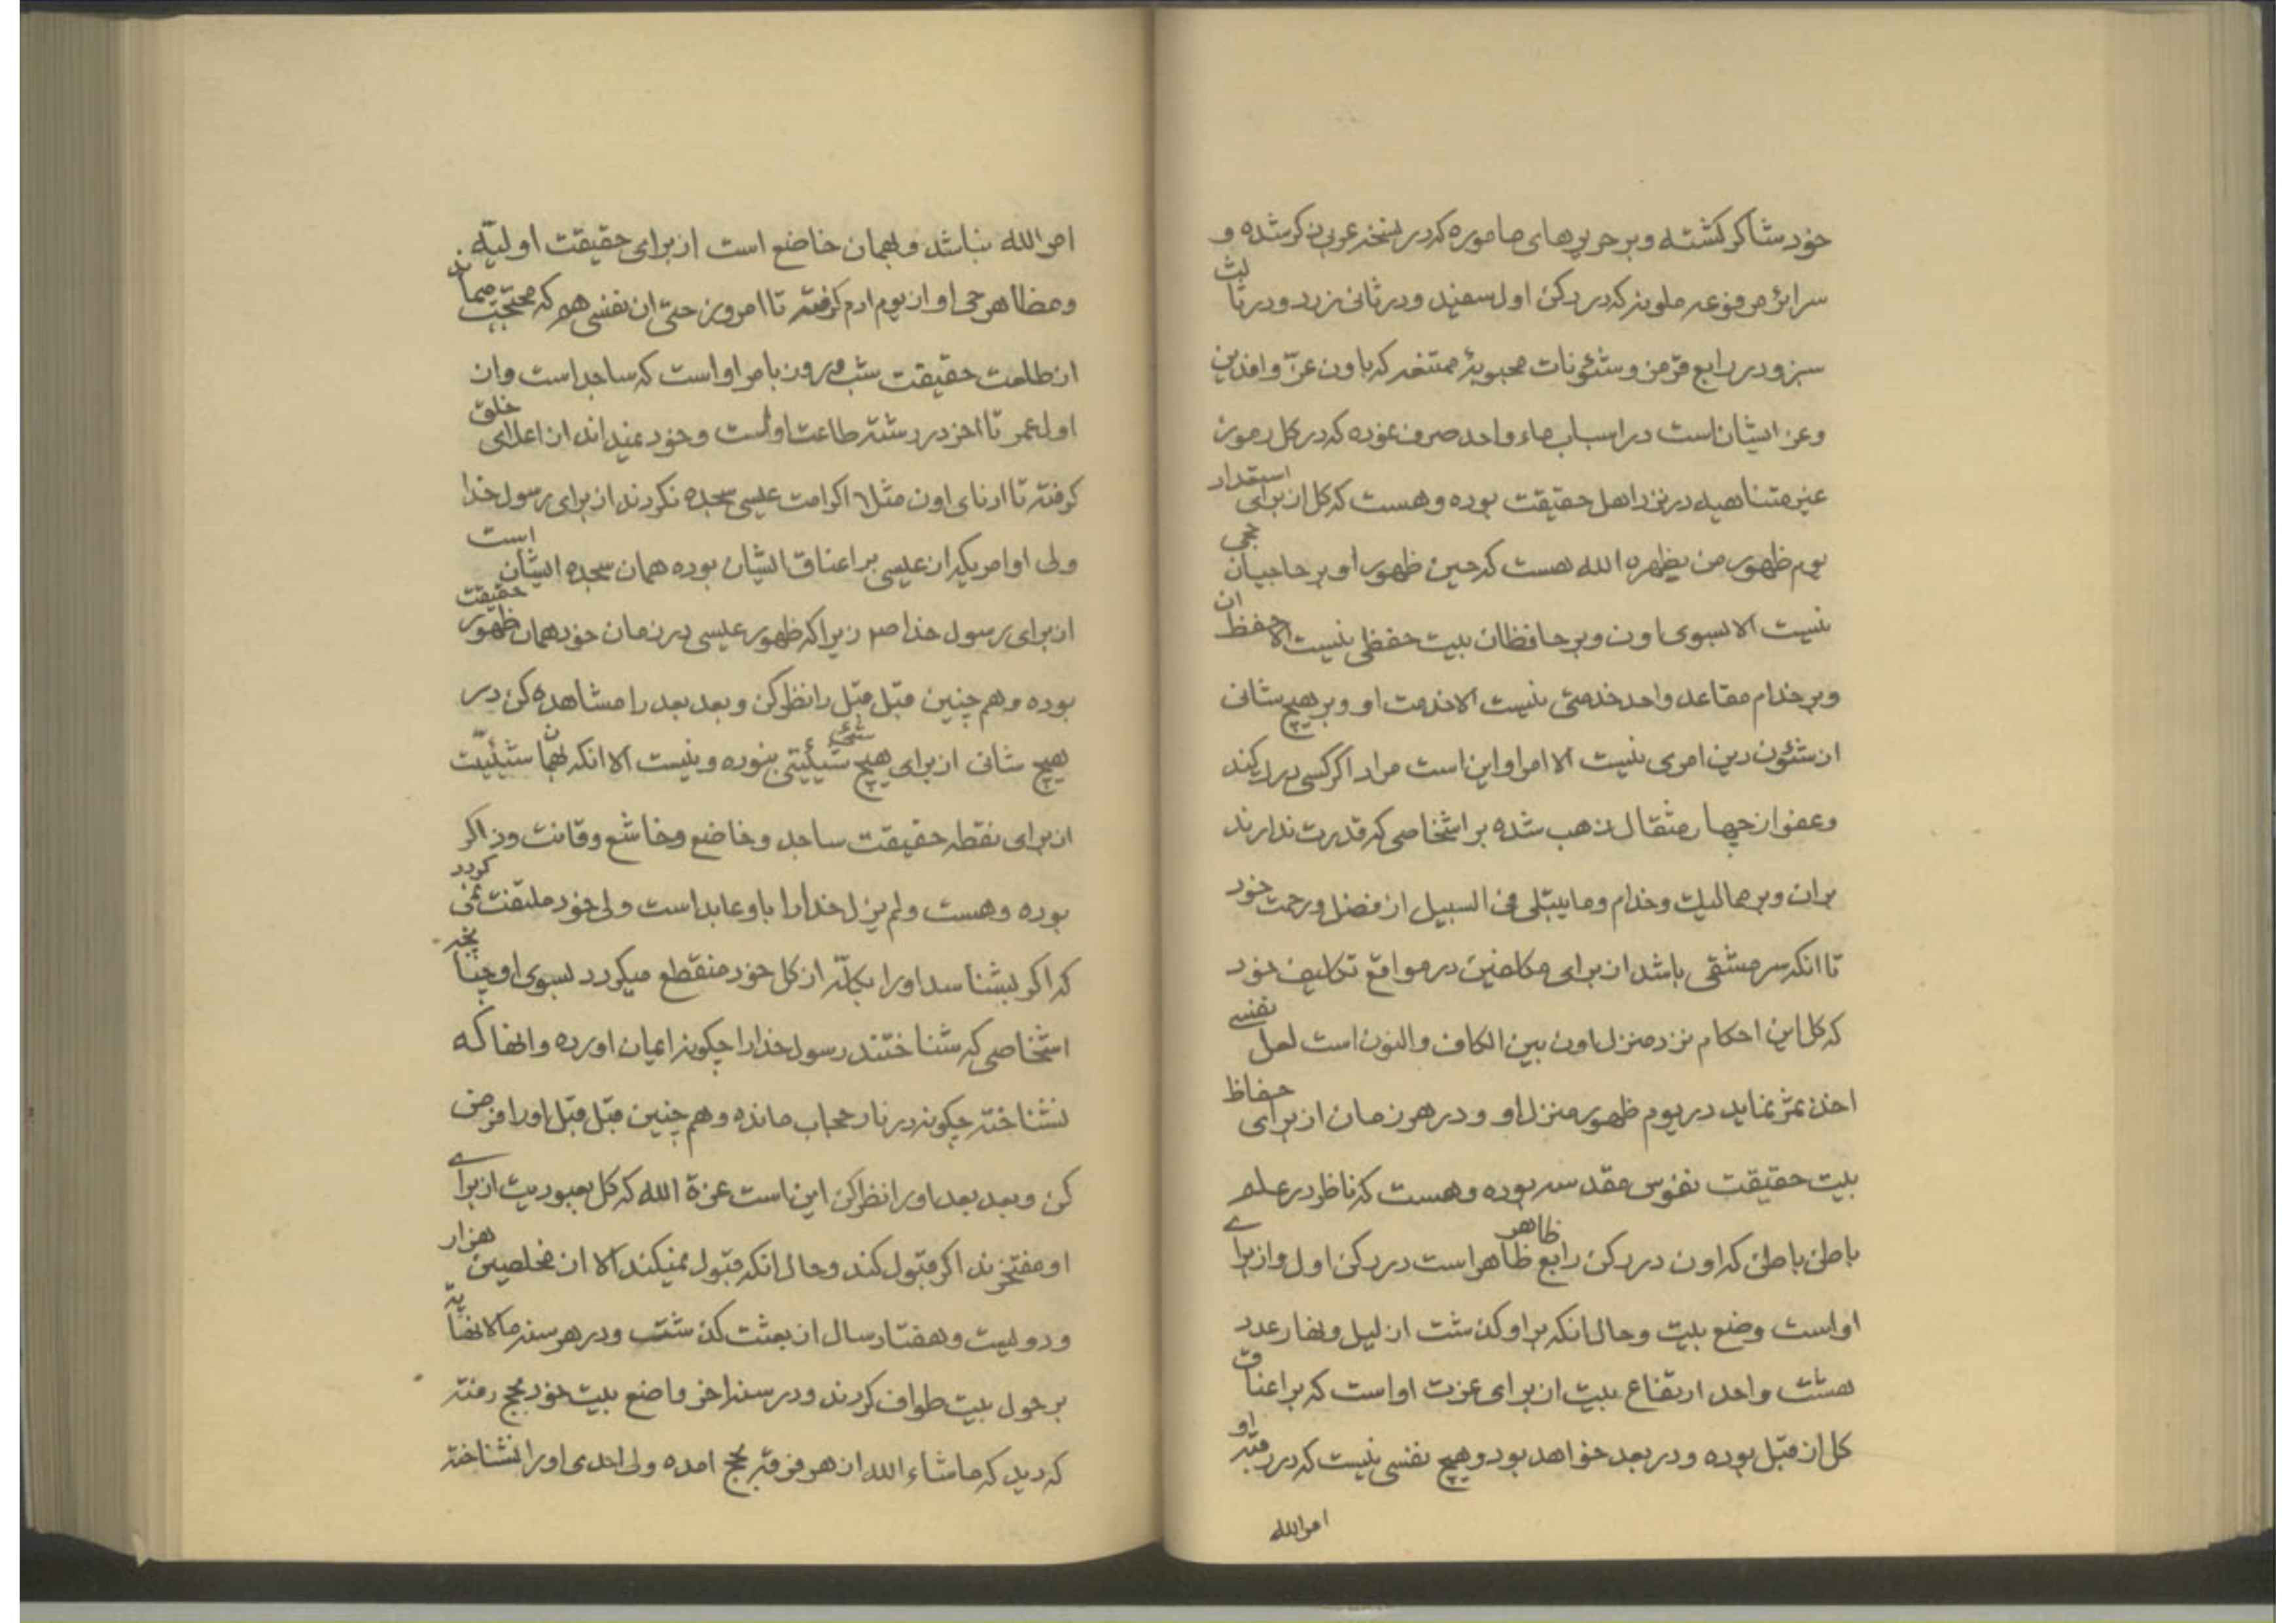 خود شاکر گشته و بر حریرهای ماموره که در نسخه عربی ذکر شده و
سرائر مرفوعه ملونه که در رکن اول سفید و در ثانی زرد و در ثالث
سبز و در رابع قرمز و شئونات محبوبهٔ ممتنعه که باون عزّ و افدین
وعز ایشان است در اسباب ماء واحد صرف نموده که در کل رموز
غیر متناهیه در نزد اهل حقیقت بوده و هست که کل از برای استقدار
یوم ظهور من یظهره الله هست که حین ظهور او بر حاجیان حجی
نیست الا بسوی اون و بر حافظان بیت حفظی نیست الا حفظ ان
و بر خدام مقاعد واحد خدمتی نیست الا خدمت او و بر هیچ شانی
از شئون دین امری نیست الا امر او این است مراد اگر کسی درک کند
وعفو از چهار مثقال ذهب شده بر اشخاصی که قدرت ندارند
بران و بر ممالیک و خدام و ما یبتلی فی السبیل از فضل و رحمت خود
تا انکه سر مشقی باشد از برای مکلفین در مواقع تکلیف خود
که کل این احکام نزد منزل اون بین الکاف والنون است لعل نفسی
اخذ ثمر نماید در یوم ظهور منزل او و در هر زمان از برای حفاظ
بیت حقیقت نفوس مقدسه بوده و هست که ناظر در علم
باطن باطن که اون در رکن رابع ظاهر ظاهر است در رکن اول و از برای
اواست وضع بیت و حال انکه بر او گذشت از لیل و نهار عدد
هشت واحد ارتفاع بیت از برای عزت او است که بر اعناق
کل از قبل بوده و در بعد خواهد بود و هیچ نفسی نیست که در رقبه او
امر الله
امر الله نباشد و بهمان خاضع است از برای حقیقت اولیّه
ومظاهر حی او از یوم ادم گرفته تا امروز حتی ان نفسی هم که محتجب میماند
از طلعت حقیقت شب و روز بامر او است که ساجد است و از
اول عمر تا اخر در رشته طاعت اوست و خود نمیداند از اعلای خلق
گرفته تا ادنای اون مثلا اگر امت عیسی سجده نکردند از برای رسول خدا
ولی اوامریکه از عیسی بر اعناق ایشان بوده همان سجده ایشان است
از برای رسول خدا ص زیرا که ظهور عیسی در زمان خود همان ظهور حقیقت
بوده و هم چنین قبل قبل را نظر کن و بعد بعد را مشاهده کن در
هیچ شانی از برای هیچ شیء شیئیتی نبوده و نیست الا انکه بهمان شیئیّت
از برای نقطه حقیقت ساجد و خاضع و خاشع و قانت و ذاکر
بوده و هست و لم یزل خدا را باو عابد است ولی خود ملتفت نمی گردد
که اگر بشناسد او را بکلّه از کل خود منقطع میگردد بسوی او چنانچه
اشخاصی که شناختند رسول خدا را چگونه ایمان اورده و انها که
نشناخته چگونه در نار حجاب مانده و هم چنین قبل قبل او را فرض
کن و بعد بعد او را نظر کن این است عزة الله که کل بعبودیت از برای
او مفتخرند اگر قبول کند و حال انکه قبول نمیکند الا از مخلصین هزار
و دویست و هفتاد سال از بعثت گذشت و در هر سنه مالا نهایة
بر حول بیت طواف کردند و در سنه اخر واضع بیت خود بحج رفته
که دید که ماشاء الله از هر فرقه بحج امده ولی احدی او را نشناخته